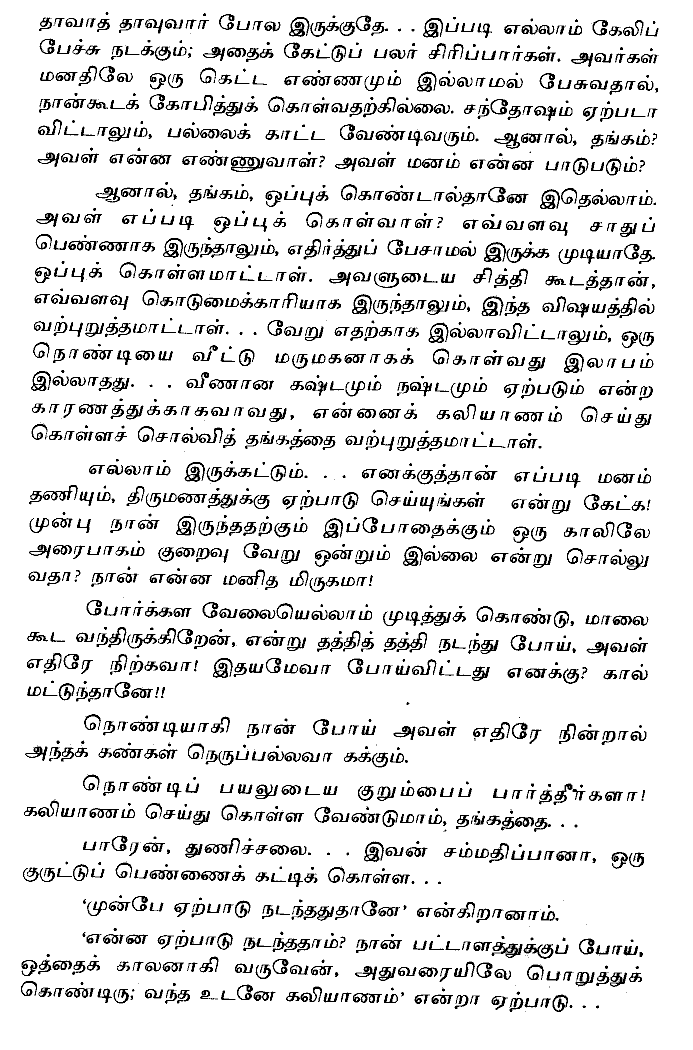 தாவாத் தாவுவார் போல இருக்குதே. . . இப்படி எல்லாம் கேலிப்
பேச்சு நடக்கும்; அதைக் கேட்டுப் பலர் சிரிப்பார்கள். அவர்கள்
மனதிலே ஒரு கெட்ட எண்ணமும் இல்லாமல் பேசுவதால்,
நான்கூடக் கோபித்துக் கொள்வதற்கில்லை. சந்தோஷம் ஏற்படா
விட்டாலும், பல்லைக் காட்ட வேண்டிவரும். ஆனால், தங்கம்?
அவள் என்ன எண்ணுவாள்? அவள் மனம் என்ன பாடுபடும்?
ஆனால், தங்கம், ஒப்புக் கொண்டால்தானே இதெல்லாம்.
அவள் எப்படி ஒப்புக் கொள்வாள்? எவ்வளவு சாதுப்
பெண்ணாக இருந்தாலும், எதிர்த்துப் பேசாமல் இருக்க முடியாதே.
ஒப்புக் கொள்ளமாட்டாள். அவளுடைய சித்தி கூடத்தான்,
எவ்வளவு கொடுமைக்காரியாக இருந்தாலும், இந்த விஷயத்தில்
வற்புறுத்தமாட்டாள். . . வேறு எதற்காக இல்லாவிட்டாலும், ஒரு
நொண்டியை வீட்டு மருமகனாகக் கொள்வது இலாபம்
இல்லாதது. . . வீணான கஷ்டமும் நஷ்டமும் ஏற்படும் என்ற
காரணத்துக்காகவாவது, என்னைக் கலியாணம் செய்து
கொள்ளச் சொல்வித் தங்கத்தை வற்புறுத்தமாட்டாள்.
எல்லாம் இருக்கட்டும். . . எனக்குத்தான் எப்படி மனம்
தணியும், திருமணத்துக்கு ஏற்பாடு செய்யுங்கள் என்று கேட்க!
முன்பு நான் இருந்ததற்கும் இப்போதைக்கும் ஒரு காலிலே
அரைபாகம் குறைவு வேறு ஒன்றும் இல்லை என்று சொல்லு
வதா? நான் என்ன மனித மிருகமா!
போர்க்கள வேலையெல்லாம் முடித்துக் கொண்டு, மாலை
கூட வந்திருக்கிறேன், என்று தத்தித் தத்தி நடந்து போய், அவள்
எதிரே நிற்கவா! இதயமேவா போய்விட்டது எனக்கு? கால்
மட்டுந்தானே!!
நொண்டியாகி நான் போய் அவள் எதிரே நின்றால்
அந்தக் கண்கள் நெருப்பல்லவா கக்கும்.
நொண்டிப் பயலுடைய குறும்பைப் பார்த்தீர்களா!
கலியாணம் செய்து கொள்ள வேண்டுமாம், தங்கத்தை. . .
பாரேன், துணிச்சலை. . . இவன் சம்மதிப்பானா, ஒரு
குருட்டுப் பெண்ணைக் கட்டிக் கொள்ள. . .
‘முன்பே ஏற்பாடு நடந்ததுதானே’ என்கிறானாம்.
‘என்ன ஏற்பாடு நடந்ததாம்? நான் பட்டாளத்துக்குப் போய்,
ஒத்தைக் காலனாகி வருவேன், அதுவரையிலே பொறுத்துக்
கொண்டிரு; வந்த உடனே கலியாணம்’ என்றா ஏற்பாடு. . .